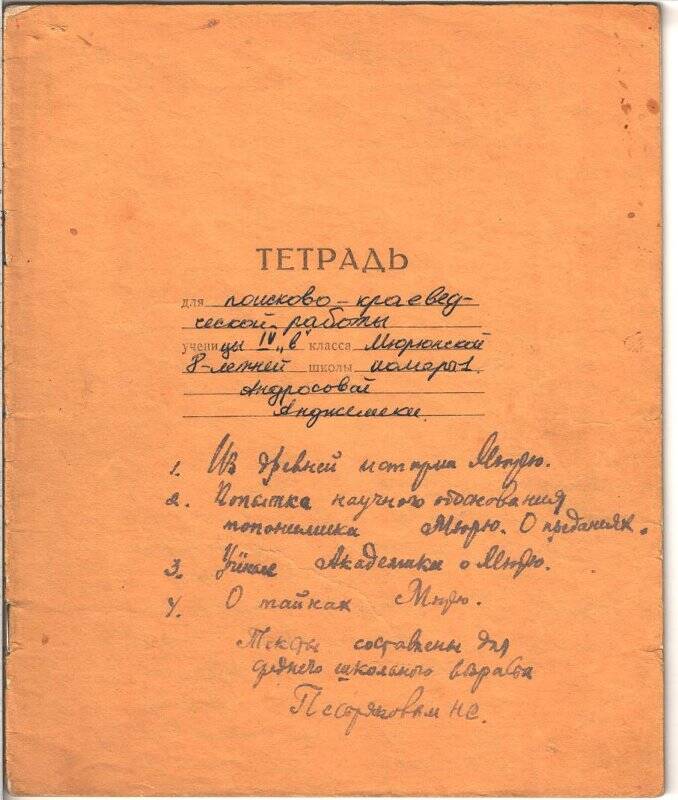 ТЕТРАДЬ
для поисково-краевед-
ческой работы
ученицы IV „в" класса Мюрюнской
8-летней школы номер 1
Андросовой
Анджелики
1. Из древней истории Мюрю.
2. Попытка научного обоснования
топонимика Мюрю. О преданиях.
3. Учёные Академики о Мюрю.
4. О тайнах Мюрю.
Тексты составлены для
среднего школьного возраста
Пестряковым НС.